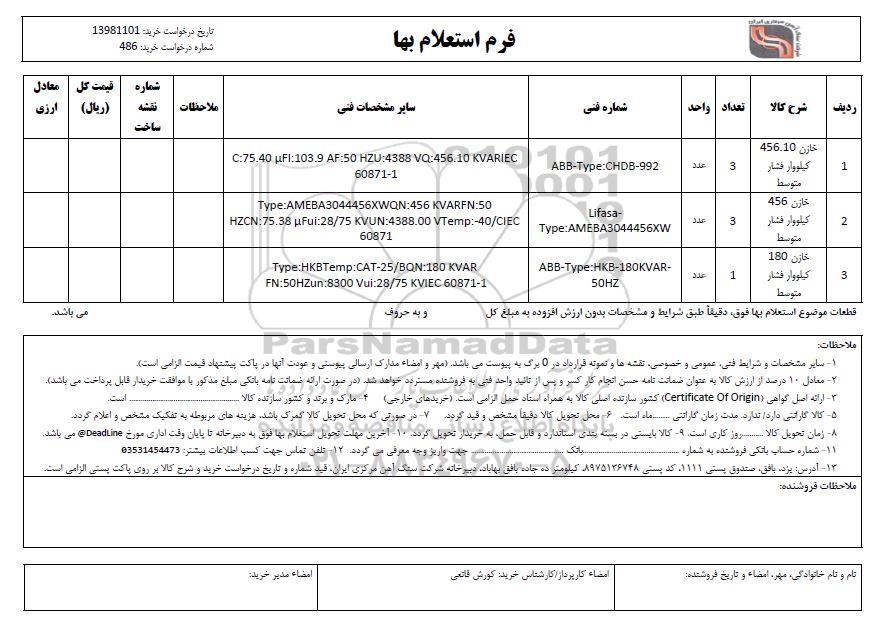 فرم استعلام بها
تاریخ درخواست خرید: 13981101
شماره درخواست خرید: 486
ردیف شرح کالا تعداد واحد شماره فنی سایر مشخصات فنی ملاحظات شماره نقشه ساخت قیمت کل (ریال) معادل ارزی
1 خازن 456.10 کیلووار فشار متوسط 3 عدد ABB-Type:CHDB-992 C:75.40 µFI:103.9 AF:50 HZU:4388 VQ:456.10 KVARIEC 60871-1
2 خازن 456 کیلووار فشار متوسط 3 عدد Lifasa-Type:AMEBA3044456XW Type:AMEBA3044456XWQN:456 KVARFN:50 HZCN:75.38 µFui:28/75 KVUN:4388.00 VTemp:-40/CIEC 60871
3 خازن 180 کیلووار فشار متوسط 1 عدد ABB-Type:HKB-180KVAR-50HZ Type:HKBTemp:CAT-25/BQN:180 KVAR FN:50HZun:8300 Vui:28/75 KVIEC 60871-1
قطعات موضوع استعلام بها فوق، دقیقاً طبق شرایط و مشخصات بدون ارزش افزوده به مبلغ کل و به حروف می باشد.
ParsNamadData
ملاحظات:
۱- سایر مشخصات و شرایط فنی، عمومی و خصوصی، نقشه ها و نمونه قرارداد در 0 برگ به پیوست می باشد. (مهر و امضاء مدارک ارسالی پیوستی و عودت آنها در پاکت پیشنهاد قیمت الزامی است).
۲- معادل ۱۰ درصد از ارزش کالا به عنوان ضمانت نامه حسن انجام کار کسر و پس از تائید واحد فنی به فروشنده مسترد خواهد شد. (در صورت ارائه ضمانت نامه بانکی مبلغ مذکور با موافقت خریدار قابل پرداخت می باشد).
۳- ارائه اصل گواهی (Certificate Of Origin) کشور سازنده اصلی کالا به همراه اسناد حمل الزامی است. (خریدهای خارجی) ۴- مارک و برند و کشور سازنده کالا .................... است.
۵- کالا گارانتی دارد/ ندارد. مدت زمان گارانتی .........ماه است. ۶- محل تحویل کالا دقیقاً مشخص و قید گردد. ۷- در صورتی که محل تحویل کالا گمرک باشد، هزینه های مربوطه به تفکیک مشخص و اعلام گردد.
۸- زمان تحویل کالا ...........روز کاری است. ۹- کالا بایستی در بسته بندی استاندارد و قابل حمل، به خریدار تحویل گردد. ۱۰- آخرین مهلت تحویل استعلام بها فوق به دبیرخانه تا پایان وقت اداری مورخ DeadLine@ می باشد.
۱۱- شماره حساب بانکی فروشنده به شماره ....................بانک .................... جهت واریز وجه معرفی می گردد. ۱۲- تلفن تماس جهت کسب اطلاعات بیشتر: 03531454473
۱۳- آدرس: یزد، بافق، صندوق پستی ۱۱۱۱، کد پستی ۸۹۷۵۱۳۶۷۴۸، کیلومتر ده جاده بافق بهاباد، دبیرخانه شرکت سنگ آهن مرکزی ایران، قید شماره و تاریخ درخواست خرید و شرح کالا بر روی پاکت پستی الزامی است.
ملاحظات فروشنده:
نام و نام خانوادگی، مهر، امضاء و تاریخ فروشنده:
امضاء کارپرداز/کارشناس خرید: کورش قانعی
امضاء مدیر خرید: